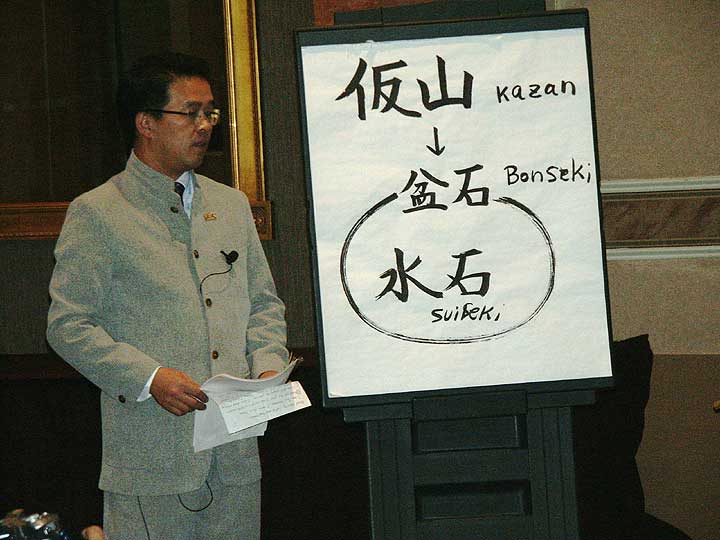 仮山 kazan
↓
盆石 Bonseki
水石
suiseki